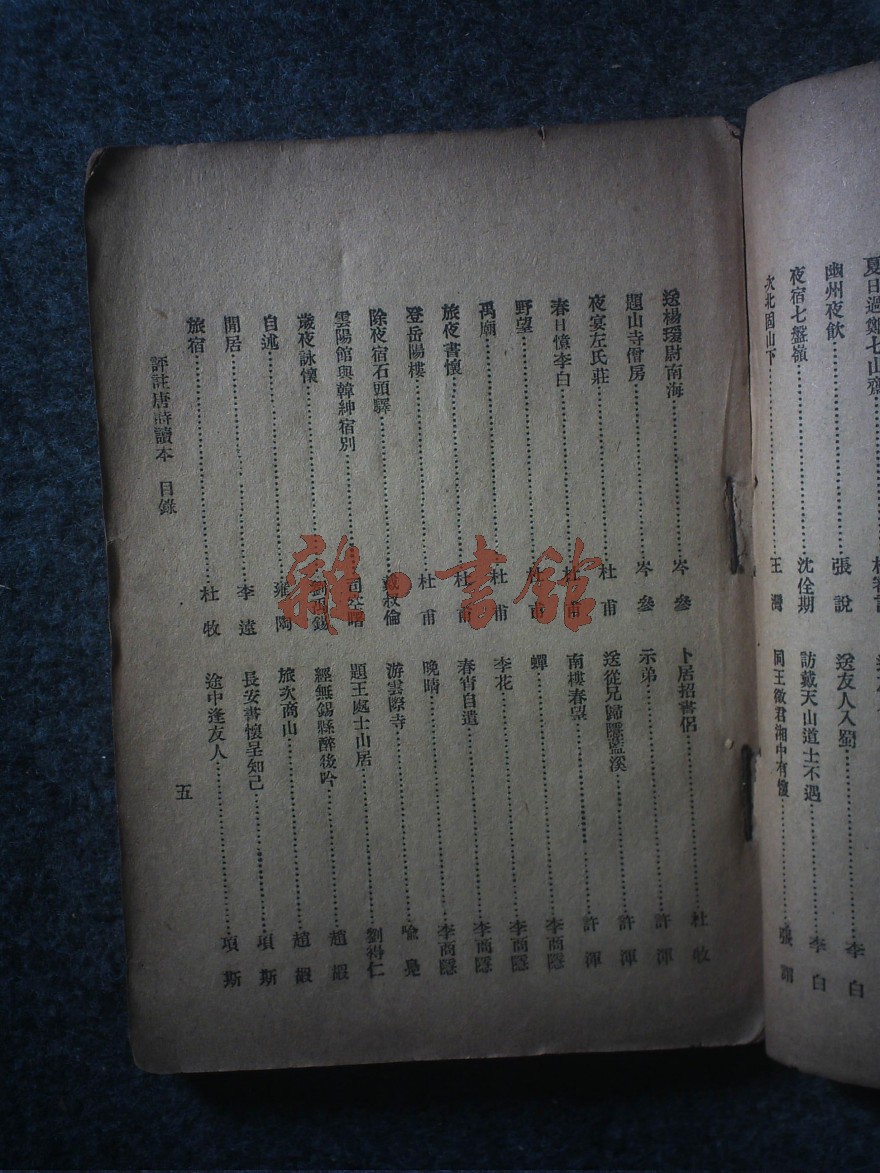 夏日過鄭七山齋
幽州夜飲 張說
夜宿七盤嶺 沈佺期
次北固山下 王灣
送友人入蜀 李白
訪戴天山道士不遇 李白
同王徵君湘中有懷 張謂
送楊瑗尉南海 岑參
題山寺僧房 岑參
夜宴左氏莊 杜甫
春日憶李白 杜甫
野望 杜甫
禹廟 杜甫
旅夜書懷 杜甫
登岳陽樓 杜甫
除夜宿石頭驛 戴叔倫
雲陽館與韓紳宿別 司空曙
歲夜詠懷 劉禹錫
自述 雍陶
閒居 李遠
旅宿 杜牧
卜居招書侶 杜牧
示弟 許渾
送從兄歸隱藍溪 許渾
南樓春望 許渾
蟬 李商隱
李花 李商隱
春宵自遣 李商隱
晚晴 李商隱
游雲際寺 喻鳧
題王處士山居 劉得仁
經無錫縣醉後吟 趙嘏
旅次商山 趙嘏
長安書懷呈知己 項斯
途中逢友人 項斯
評註唐詩讀本 目錄
五
雜·書館